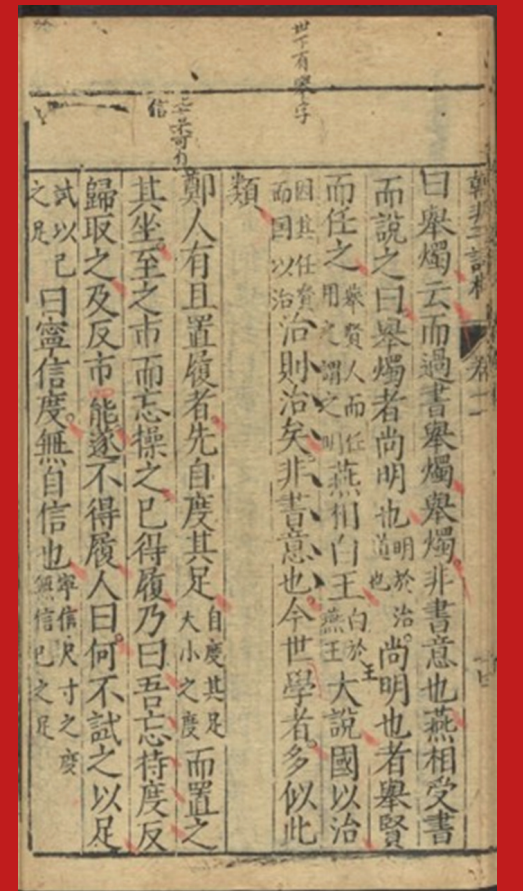 世下有學字
信
曰舉燭云而過書舉燭舉燭。非書意也燕相受書
而說之曰舉燭者尚明也明於治道也。尚明也者舉賢
而任之舉賢人而任用之謂之明燕相白王白於燕王王大說國以治
因其任賢而國以治治則治矣非書意也。今世學者。多似此
類
鄭人有且置履者先自度其足自度其足大小之度而置之
其坐至之市而忘操之已得履乃曰吾忘持度反
歸取之及反市罷遂不得履人曰。何不試之以足
試以己之足曰寧信度。無自信也寧信尺寸之度無信己之足